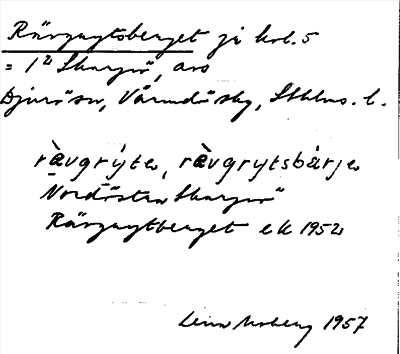 Rävgrytsberget jä kbl. 5
= 1 Skarpö, avs
Djurö sn, Värmdö skg, Sthlms. l.
rävgrýte, rävgrytsbärje
Nordöstra Skarpö
Rävgrytberget ek 1952
Moberg 1957